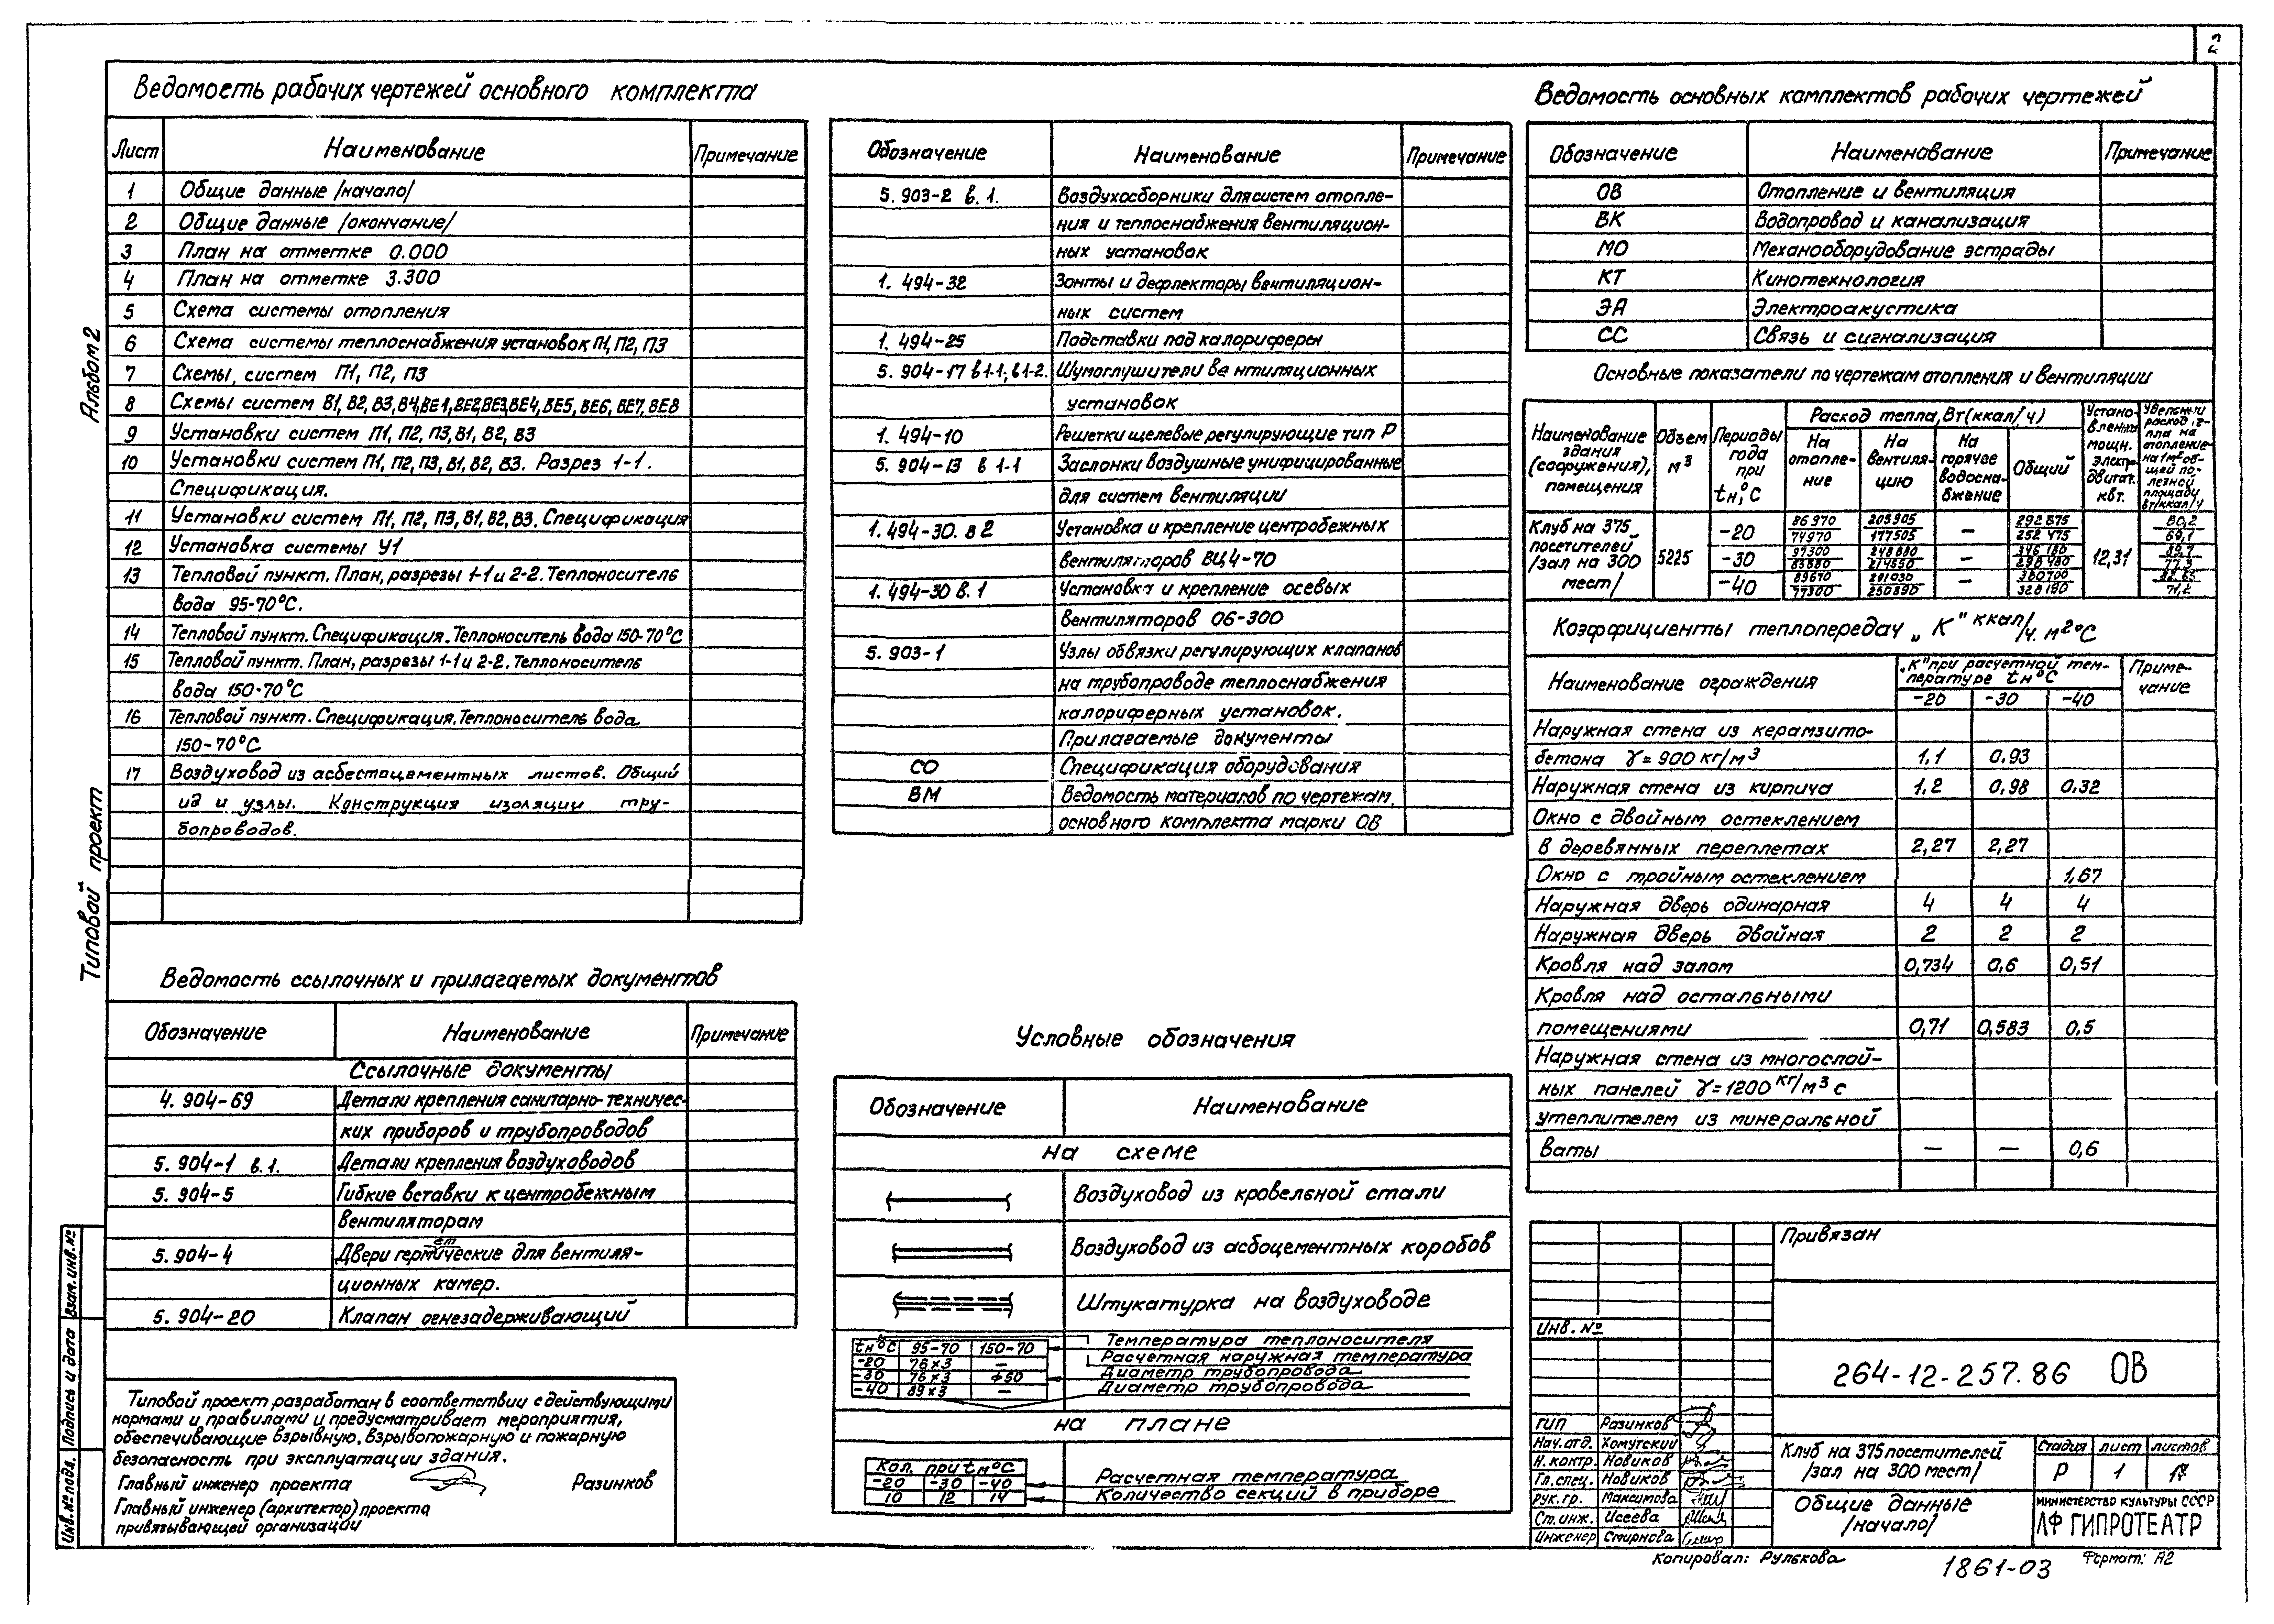 2
Ведомость рабочих чертежей основного комплекта
Лист Наименование Примечание
1 Общие данные /начало/
2 Общие данные /окончание/
3 План на отметке 0.000
4 План на отметке 3.300
5 Схема системы отопления
6 Схема системы теплоснабжения установок П1, П2, П3
7 Схемы систем П1, П2, П3
8 Схемы систем В1, В2, В3, В4, ВЕ1, ВЕ2, ВЕ3, ВЕ4, ВЕ5, ВЕ6, ВЕ7, ВЕ8
9 Установки систем П1, П2, П3, В1, В2, В3
10 Установки систем П1, П2, П3, В1, В2, В3. Разрез 1-1.
Спецификация.
11 Установки систем П1, П2, П3, В1, В2, В3. Спецификация
12 Установка системы У1
13 Тепловой пункт. План, разрезы 1-1 и 2-2. Теплоноситель
вода 95-70°С.
14 Тепловой пункт. Спецификация. Теплоноситель вода 150-70°С
15 Тепловой пункт. План, разрезы 1-1 и 2-2. Теплоноситель
вода 150-70°С
16 Тепловой пункт. Спецификация. Теплоноситель вода
150-70°С
17 Воздуховод из асбестоцементных листов. Общий
ид и узлы. Конструкция изоляции тру-
бопроводов.
Альбом 2
Типовой проект
Ведомость ссылочных и прилагаемых документов
Обозначение Наименование Примечание
Ссылочные документы
4. 904-69 Детали крепления санитарно-техничес-
ких приборов и трубопроводов
5. 904-1 в.1. Детали крепления воздуховодов
5. 904-5 Гибкие вставки к центробежным
вентиляторам
5. 904-4 Двери герметические для вентиля-
ционных камер.
5. 904-20 Клапан огнезадерживающий
Типовой проект разработан в соответствии с действующими
нормами и правилами и предусматривает мероприятия,
обеспечивающие взрывную, взрывопожарную и пожарную
безопасность при эксплуатации здания.
Главный инженер проекта Разинков
Главный инженер (архитектор) проекта
привязывающей организации
Взам. инв. №
Подпись и дата
Инв. № подл.
Обозначение Наименование Примечание
5. 903-2 в. 1. Воздухосборники для систем отопле-
ния и теплоснабжения вентиляцион-
ных установок
1. 494-32 Зонты и дефлекторы вентиляцион-
ных систем
1. 494-25 Подставки под калориферы
5. 904-17 в1-1, в1-2. Шумоглушители вентиляционных
установок
1. 494-10 Решетки щелевые регулирующие тип Р
5. 904-13 в 1-1 Заслонки воздушные унифицированные
для систем вентиляции
1. 494-30. в 2 Установка и крепление центробежных
вентиляторов ВЦ4-70
1. 494-30 в. 1 Установка и крепление осевых
вентиляторов 06-300
5. 903-1 Узлы обвязки регулирующих клапанов
на трубопроводе теплоснабжения
калориферных установок.
Прилагаемые документы
СО Спецификация оборудования
ВМ Ведомость материалов по чертежам
основного комплекта марки ОВ
Условные обозначения
Обозначение Наименование
на схеме
Воздуховод из кровельной стали
Воздуховод из асбоцементных коробов
Штукатурка на воздуховоде
tн°С 95-70 150-70
-20 76×3 —
-30 76×3 ф50
-40 89×3 —
Температура теплоносителя
Расчетная наружная температура
Диаметр трубопровода
Диаметр трубопровода
на плане
Кол. при tн°С
-20 -30 -40
10 12 14
Расчетная температура
Количество секций в приборе
Ведомость основных комплектов рабочих чертежей
Обозначение Наименование Примечание
ОВ Отопление и вентиляция
ВК Водопровод и канализация
МО Механооборудование эстрады
КТ Кинотехнология
ЭА Электроакустика
СС Связь и сигнализация
Основные показатели по чертежам отопления и вентиляции
Наименование здания (сооружения), помещения
Объем м³
Периоды года при tн,°С
Расход тепла, Вт (ккал/ч)
На отопление
На вентиляцию
На горячее водоснабжение
Общий
Установленная мощн. электродвигат. квт.
Удельный расход тепла на отопление на 1м² общей полезной площади Вт/ккал/ч
Клуб на 375 посетителей /зал на 300 мест/
5225
-20 86970 74970 205905 177505 — 292875 252475 80,2 69,1
-30 97300 83880 248880 214550 — 346180 298480 89,7 77,3
-40 89670 77300 291030 250890 — 380700 328190 82,65 71,2
12,31
Коэффициенты теплопередач „К" ккал/ч. м²°С
Наименование ограждения
„К" при расчетной тем-
пературе tн°С
-20 -30 -40
Приме-
чание
Наружная стена из керамзито-
бетона γ = 900 кг/м³ 1,1 0,93
Наружная стена из кирпича 1,2 0,98 0,32
Окно с двойным остеклением
в деревянных переплетах 2,27 2,27
Окно с тройным остеклением 1,67
Наружная дверь одинарная 4 4 4
Наружная дверь двойная 2 2 2
Кровля над залом 0,734 0,6 0,51
Кровля над остальными
помещениями 0,71 0,583 0,5
Наружная стена из многослой-
ных панелей γ = 1200 кг/м³ с
утеплителем из минеральной
ваты — — 0,6
Привязан
Инв. №
264-12-257.86 ОВ
ГИП Разинков
Нач. отд. Хомутский
Н. контр. Новиков
Гл. спец. Новиков
Рук. гр. Максимова
Ст. инж. Исеева
Инженер Смирнова
Клуб на 375 посетителей
/зал на 300 мест/
Стадия лист листов
Р 1 17
Общие данные
/начало/
МИНИСТЕРСТВО КУЛЬТУРЫ СССР
ЛФ ГИПРОТЕАТР
Копировал: Рулькова
1861-03
Формат: А2